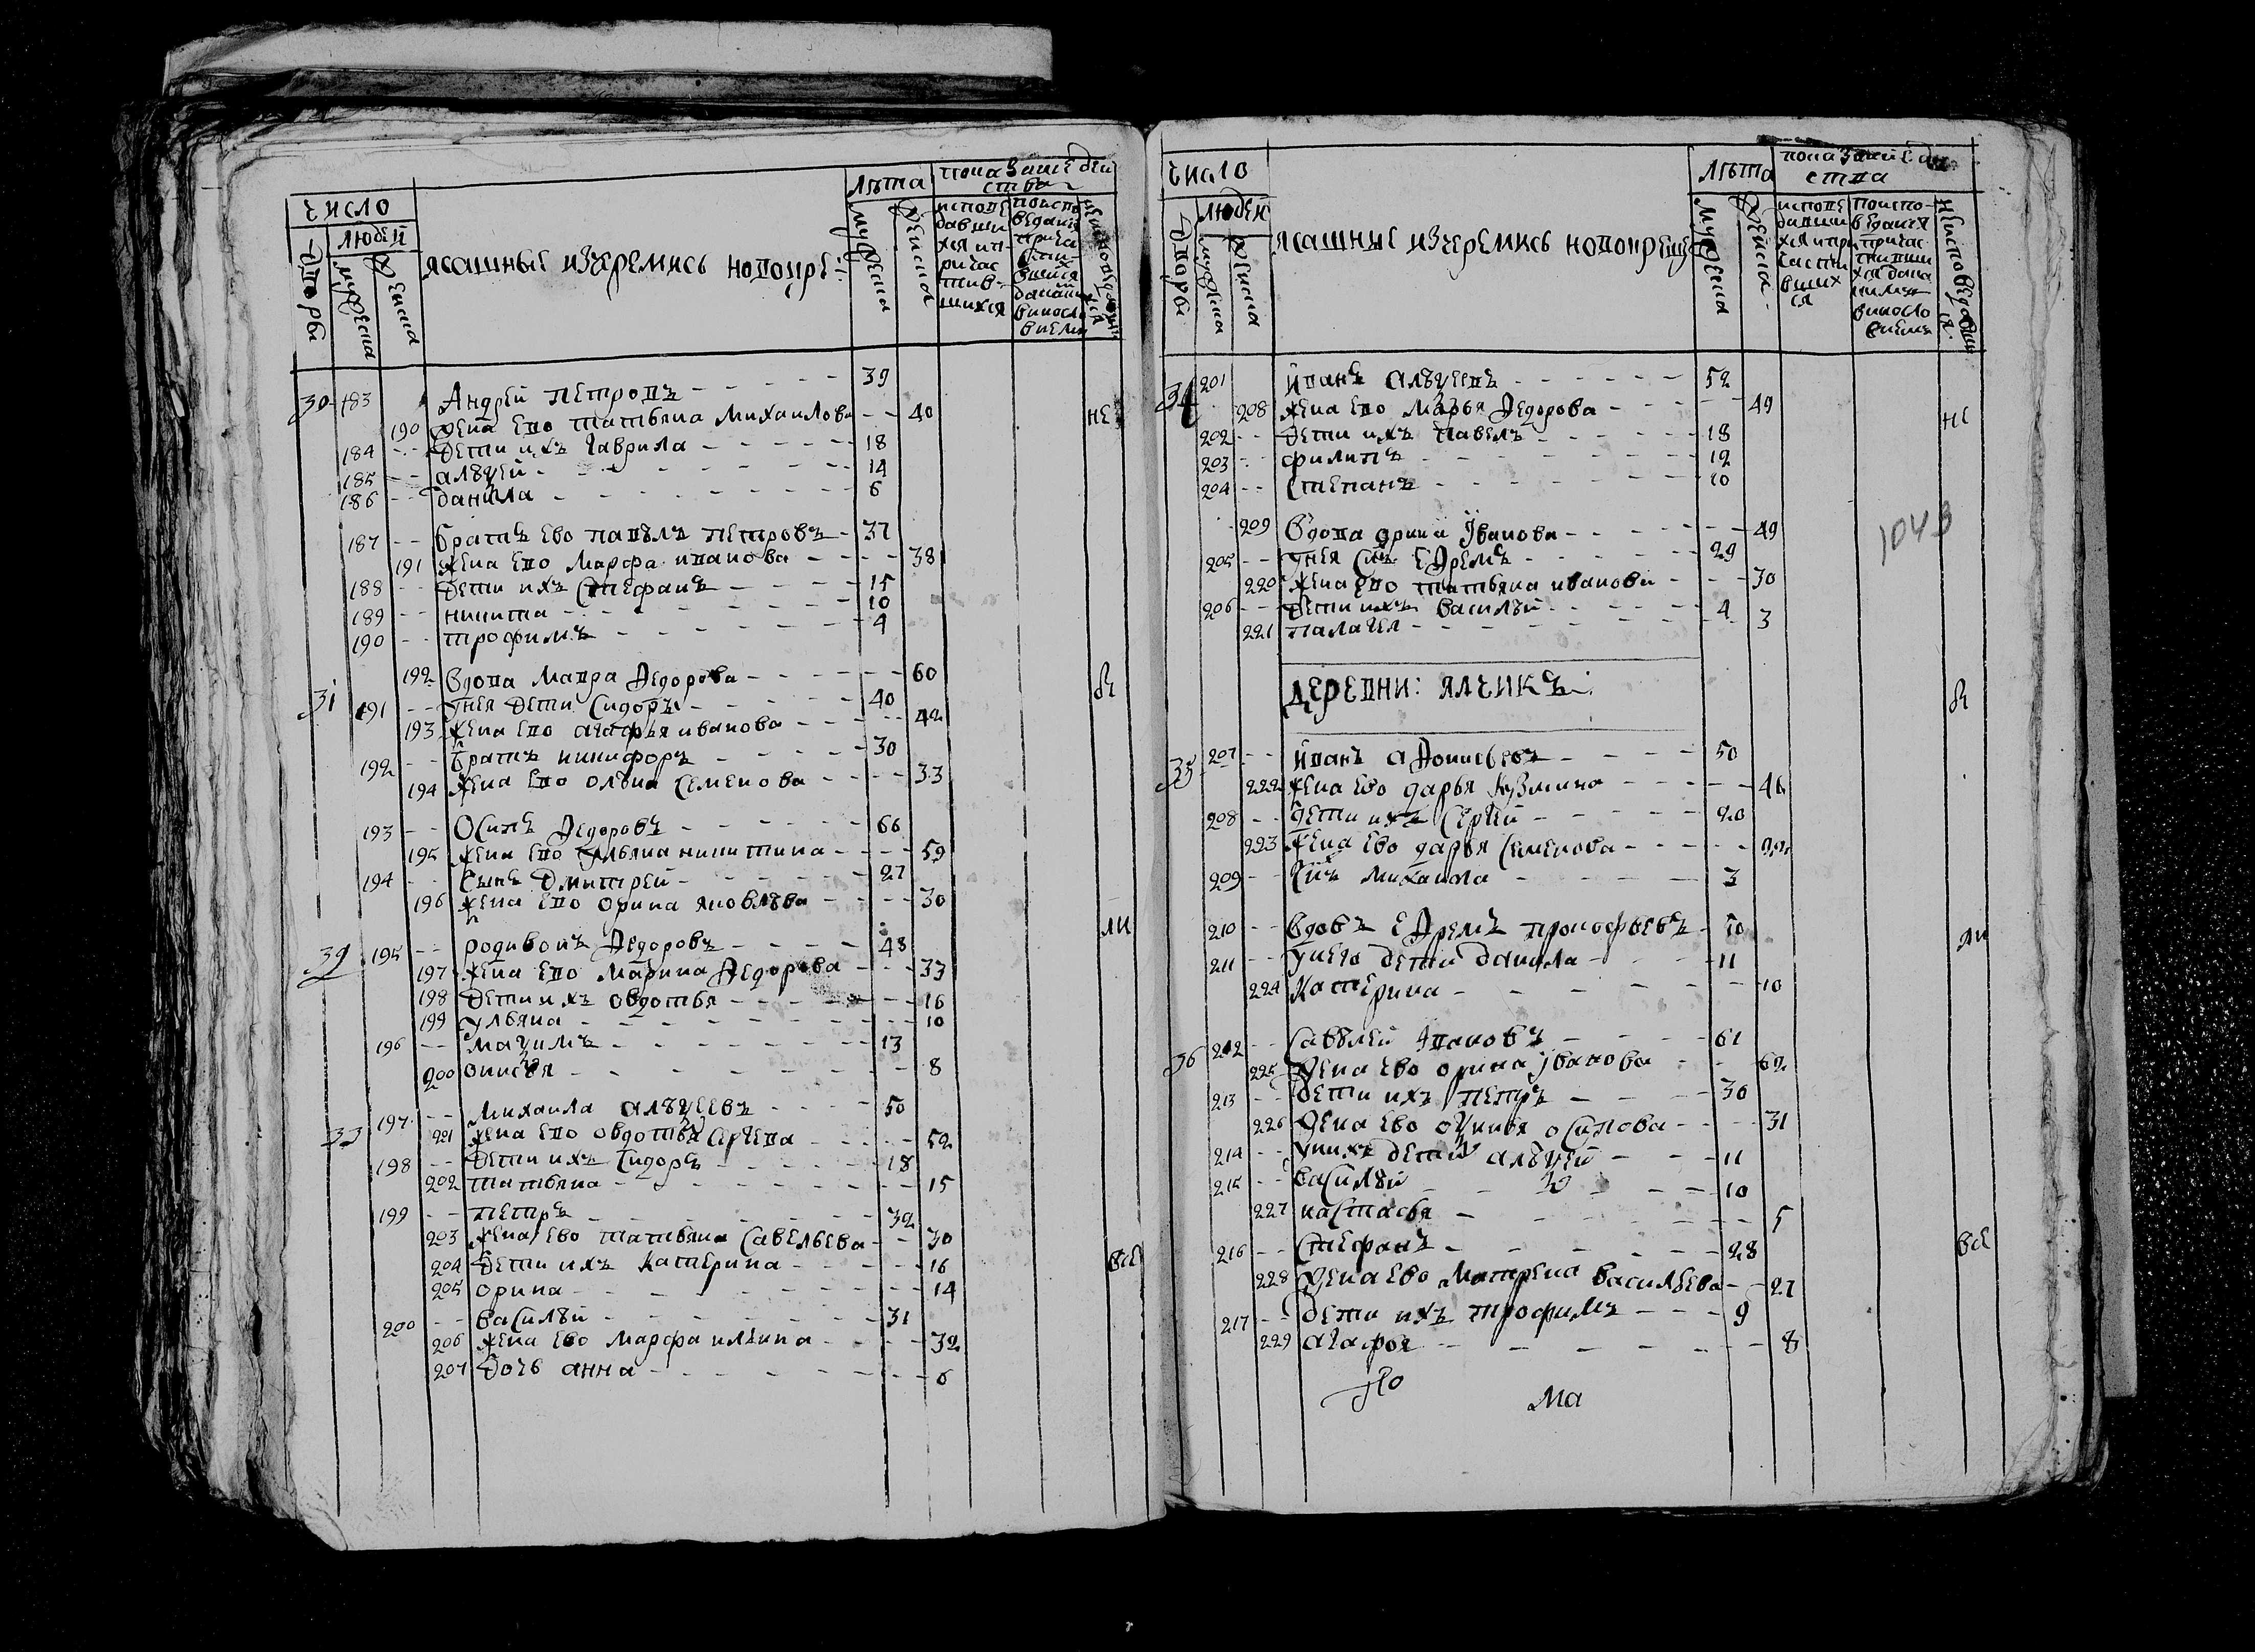 число
людей
дворы
мужеска
женска
ясашные изчеремисъ новокрѣ:
лѣта
мужеска
женска
показание дей
ства
исповѣ
давши
хся и п
ричас
тив
шихся
30 183 Андрей Петровъ 39
190 жена ево татьяна Михаилова 40 не
184 дети ихъ гаврила 18
185 алѣѯей 14
186 данила 6
187 братъ ево павѣлъ петровъ 37
191 жена ево марфа иванова 38
188 дети ихъ Стефанъ 15
189 никита 10
190 трофимъ 4
192 вдова мавра Ѳедорова 60
31 191 у нея дети Сидоръ 40
193 жена ево агафья иванова 42
192 братъ никифоръ 30
194 жена ево олѣна Семенова 33
193 Осипъ Ѳедоровъ 66
195 жена ево ульяна никитина 59
194 Сынъ дмитрей 27
196 жена ево орина яковлѣва 30
32 195 родивонъ Ѳедоровъ 48 ли
197 жена ево марина Ѳедорова 33
198 дети ихъ овдотья 16
199 ульяна 10
196 маѯимъ 13
200 онисья 8
33 197 михаила алѣѯеевъ 50
201 жена ево овдотья Сергева 52
198 дети ихъ Сидоръ 18
202 татьяна 15
199 петръ 32
203 жена ево татьяна Савельева 30
204 дети ихъ катерина 16 все
205 орина 14
200 василѣй 31
206 жена ево марфа илина 32
207 дочь анна 6
число
людей
дворы
мужеска
женска
ясашные изчеремисъ новокрещ
лѣта
мужеска
женска
показание де
ства
34 201 иванъ алѣѯеевъ 52
208 жена ево марья Ѳедорова 49 не
202 дети ихъ павелъ 18
203 филипъ 12
204 Степанъ 10
209 вдова орина Иванова 49
1043
205 у нея Снъ еѲремъ 29
220 жена ево татьяна иванова 30
206 дети ихъ василѣй 4
221 палагея 3
деревни: ялчикъ:
35 207 иванъ аѲонисьевъ 50
222 жена ево дарья кузмина 46
208 дети ихъ Сергей 20
223 жена ево дарья Семенова 22
209 Снъ михаила 3
210 вдовъ еѲремъ прокофьевъ 50 ли
211 у него дети данила 11
224 катерина 10
36 212 Савѣлей Ивановъ 61
225 жена ево орина Иванова 62
213 дети ихъ петръ 30
226 жена ево оѯинья осипова 31
214 у нихъ дети алѣѯей 11
215 василѣй 10
227 настасья 5
216 Стефанъ 28 все
228 жена ево матрена василѣева 27
217 дети ихъ трофимъ 9
229 агафья 8
ма